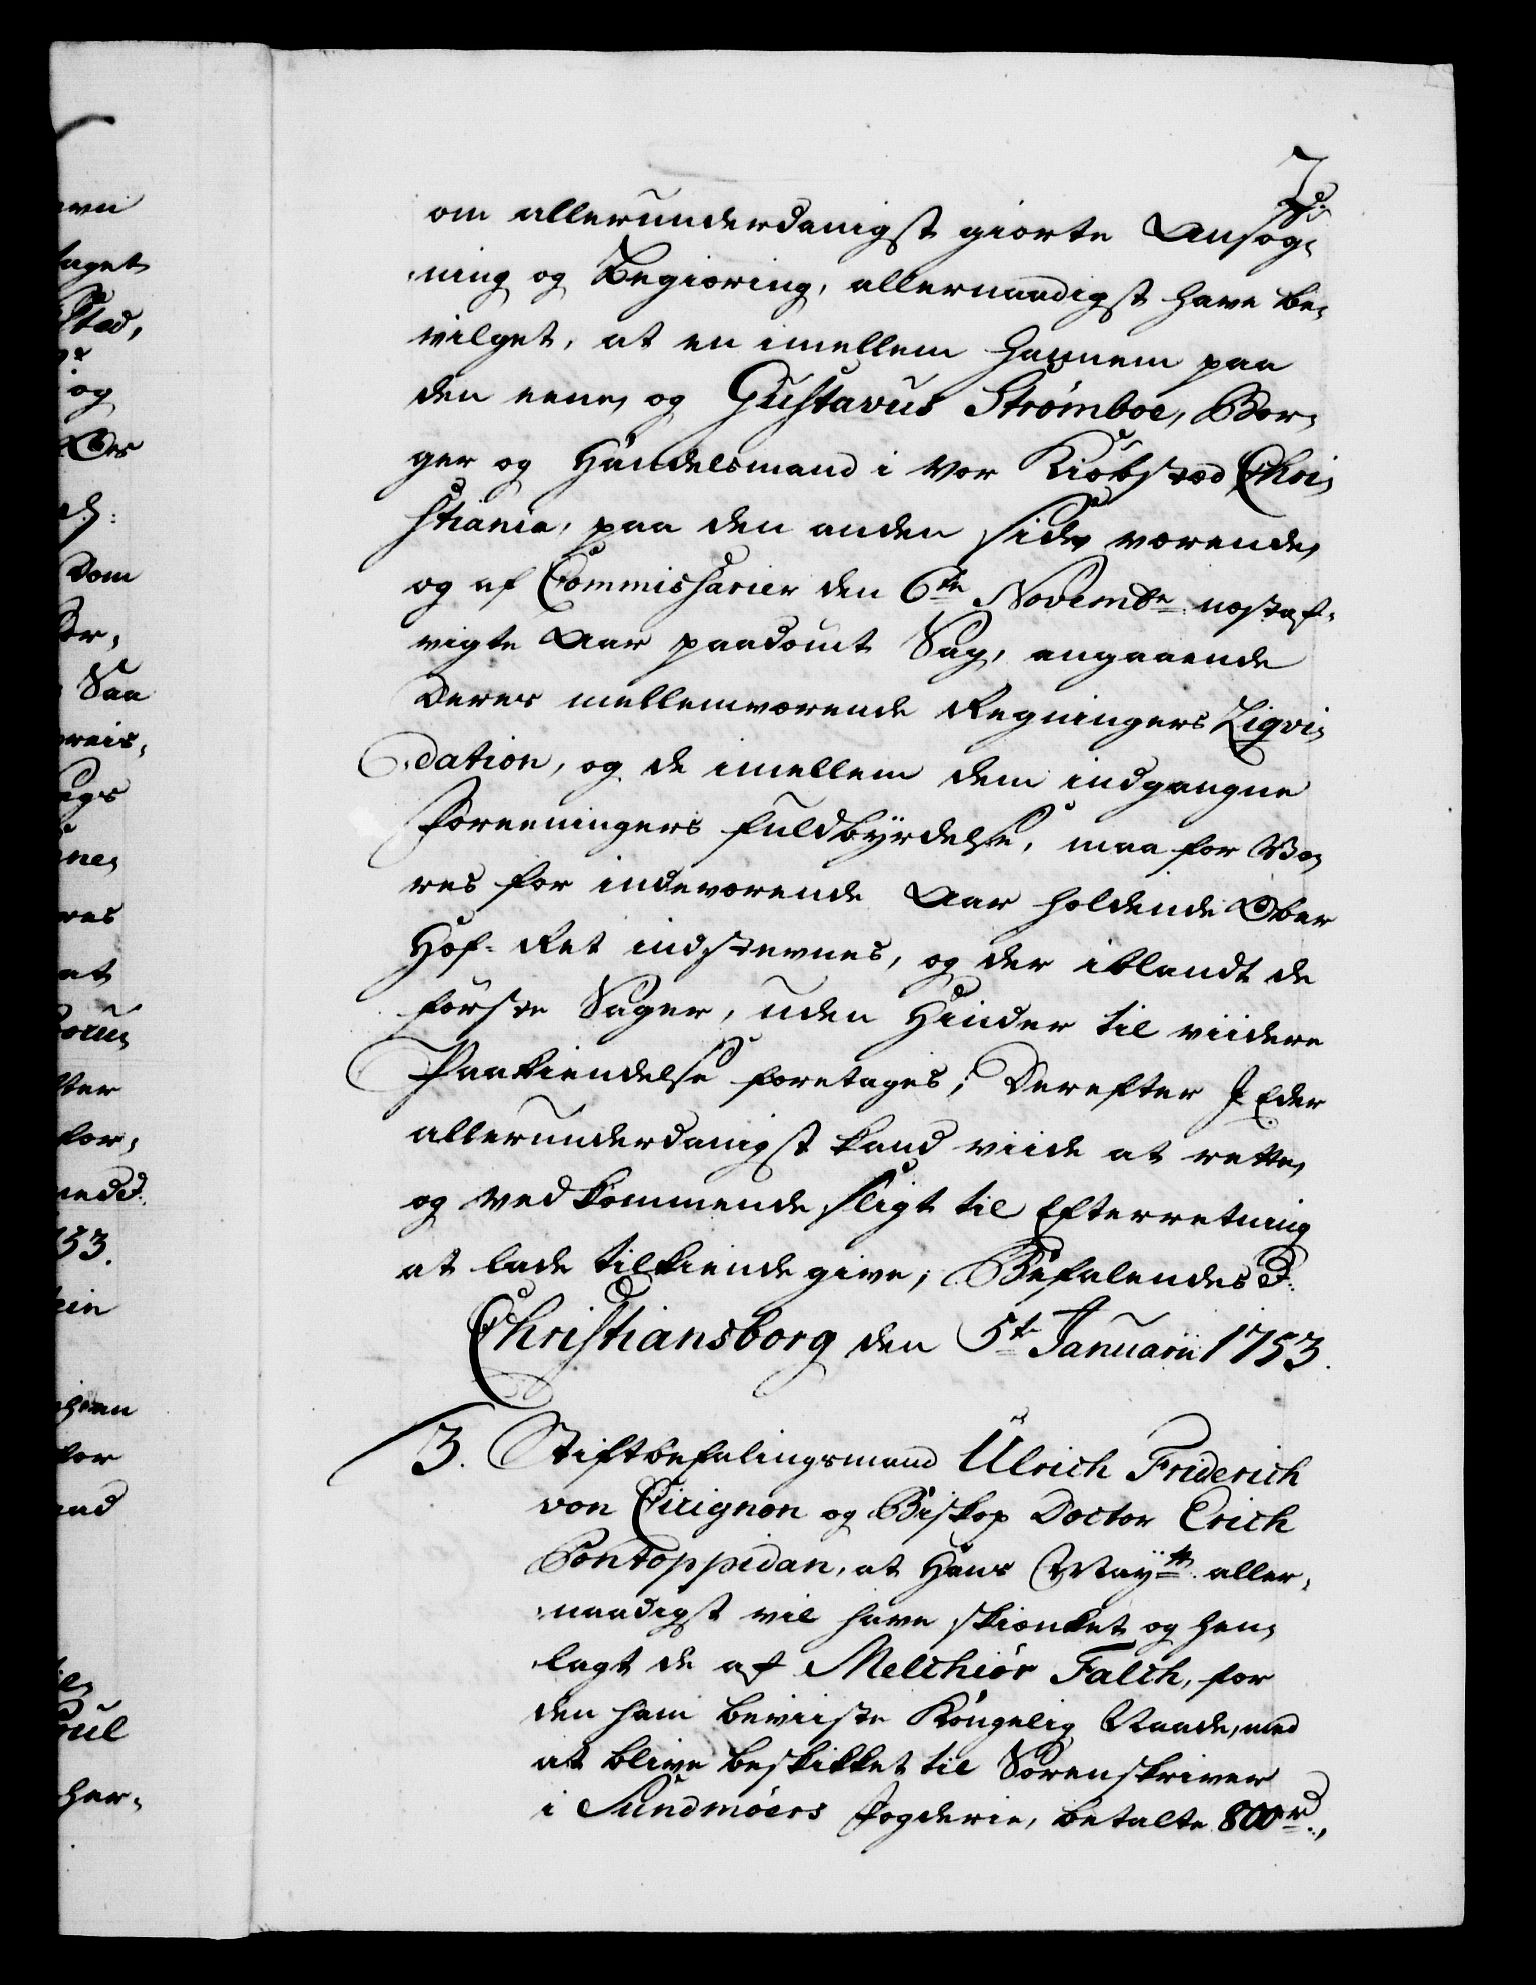 7
om allerunderdanigst giorte Ansøg-
ning og Begiæring, allernaadigst have be-
vilget, at en imellem hannem paa
den eene, og Gustavus Strømboe, Bor-
ger og Handelsmand i vor Kiøbstæd Chri-
stiania, paa den anden side værende,
og af Commissarier den 6te Novembr næstaf-
vigte Aar paadømt Sag, angaaende
deres mellemværende Regningers Liqvi-
dation, og de imellem dem indgangne
Foreeningers fuldbyrdelse, maa for Vo-
res for indeværende Aar holdende Ober
Hof-Ret indstevnes, og der iblandt de
første Sager, uden Hinder til viidere
Paakiendelse foretages; Derefter I Eder
allerunderdanigst kand viide at rette,
og vedkommende sligt til Efterretning
at lade tilkiende give; Befalendes d:
Christiansborg den 5te Januarii 1753.
3. Stiftbefalingsmand Ulrich Friderich
von Cicignon og Biskop Doctor Erich
Pontoppidan, at Hans Mayts aller-
naadigst vil have skiænket og hen-
lagt de af Melchiør Falch, for
den ham beviiste Kongelig Naade, med
at blive beskikket til Sorenskriver
i Sundmøers Fogderie, betalte 800rd.,